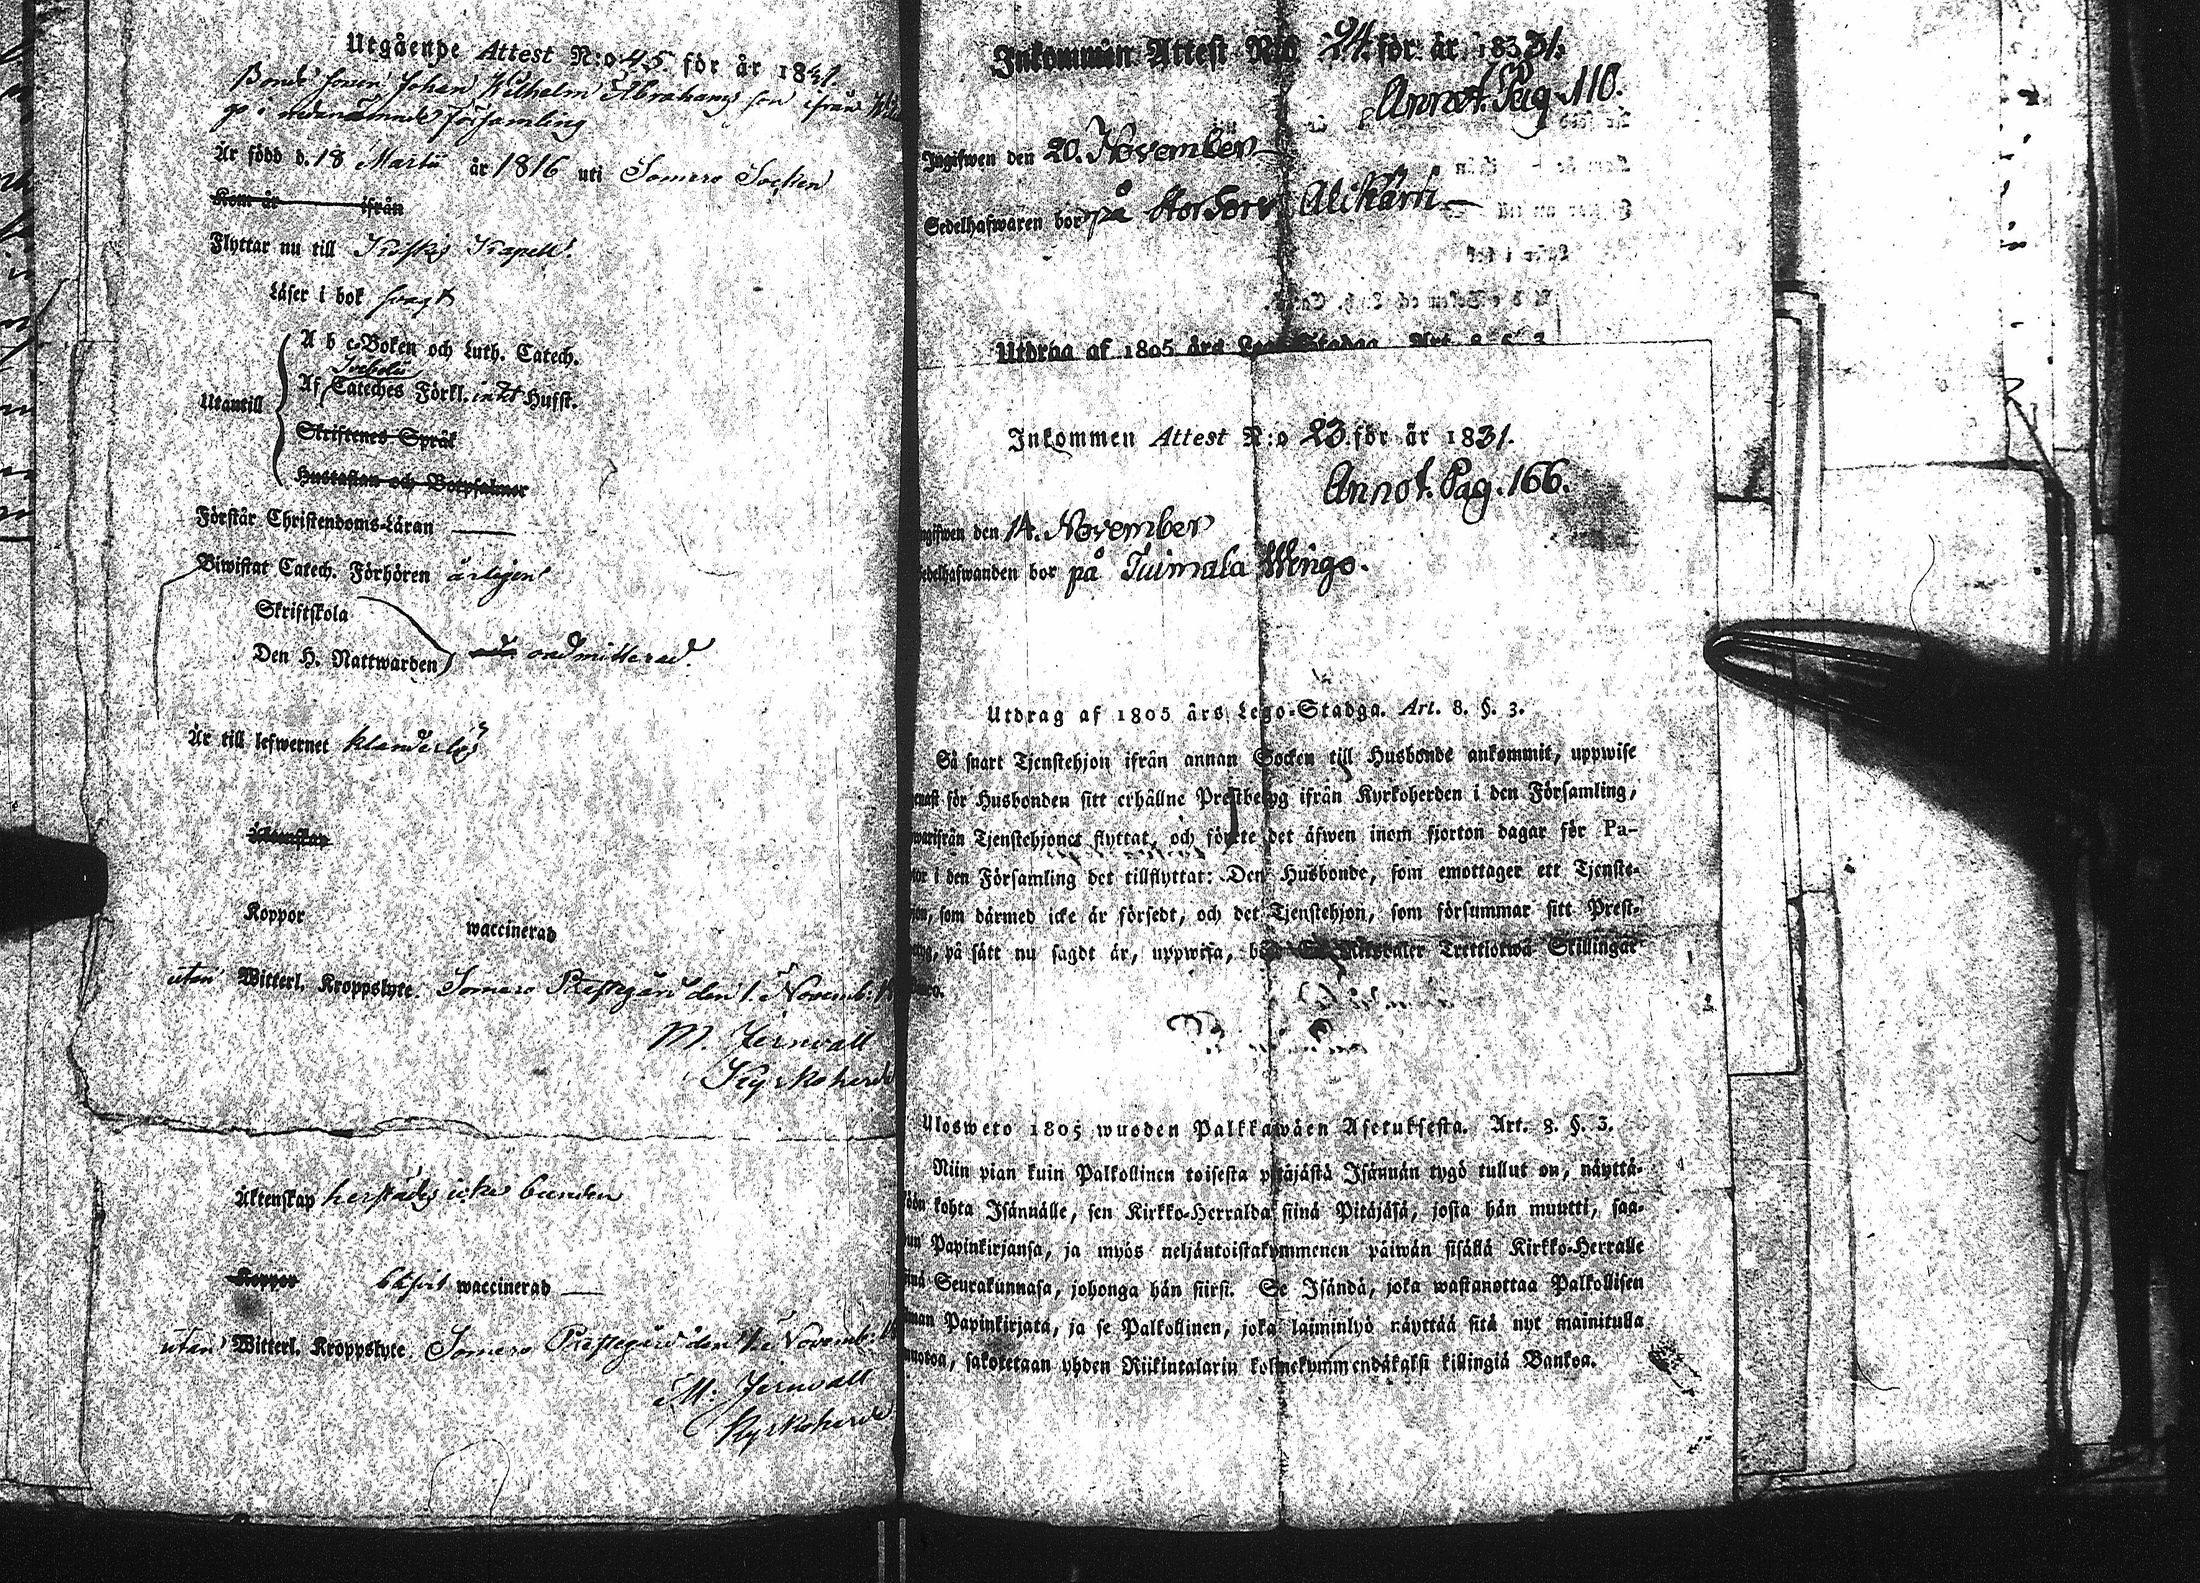 Utgående Attest N:o 45. för år 1831.
Bonde sonen Johan Wilhelm Abrahams son ifrån
i nedannämnde Församling
Är född d. 18 Martii år 1816 uti Somero Socken
Kom år ifrån
Flyttar nu till Kapell.
Läser i bok svagt
A b c-Boken och Luth. Catech.
Utantill
Af Svebelii Cateches Förkl. intet Hufst.
Skriftenes Språk
Hustaflan och Botpsalmer
Förstår Christendoms-Läran
Biwistat Catech. Förhören årligen
Skriftskola
Den H. Nattwarden admitterad.
Är till lefwernet klanderlös
Äktenskap
Koppor waccinerad
utan Witterl. Kroppslyte. Somero Prestegård den 1. Novemb:
M. Jernvall
Kyrkoherde
Äktenskap härstädes icke bunden
Koppor blifvit waccinerad
utan Witterl. Kroppslyte. Somero Prestegård den 1:e Novemb:
M: Jernvall
Kyrkoherde
Inkommen Attest N:o 24. för år 1831.
Annot. Pag. 110.
Ingifwen den 20. November
Sedelhafwaren bor på Storsorv Alikärri
Utdrag af 1805 års Lego-Stadga. Art. 8. §. 3.
Inkommen Attest N:o 23. för år 1831.
Annot. Pag. 166.
den 14. November
bor på Tuimala Wingo.
Utdrag af 1805 års Lego-Stadga. Art. 8. §. 3.
Så snart Tjenstehjon ifrån annan Socken till Husbonde ankommit, uppwise
för Husbonden sitt erhållne Prestbetyg ifrån Kyrkoherden i den Församling,
Tjenstehjonet flyttat, och förete det äfwen inom fjorton dagar för Pa-
i den Församling det tillflyttat: Den Husbonde, som emottager ett Tjenste-
som därmed icke är försedt, och det Tjenstehjon, som försummar sitt Prest-
på sätt nu sagdt är, uppwisa, Riksdaler Trettiotwå Skillingar
Ulosweto 1805 wuoden Palkkawäen Asetuksesta. Art. 8. §. 3.
Niin pian kuin Palkollinen toisesta pitäjästä Isännän tygö tullut on, näyttä-
kohta Isännälle, sen Kirkko-Herralda siinä Pitäjäsä, josta hän muutti, saa-
Papinkirjansa, ja myös neljäntoistakymmenen päiwän sisällä Kirkko-Herralle
Seurakunnasa, johonga hän siirsi. Se Isändä, joka wastanottaa Palkollisen
Papinkirjata, ja se Palkollinen, joka laiminlyö näyttää sitä nyt mainitulla
sakotetaan yhden Riikintalarin kolmekymmendäkaksi killingiä Bankoa.